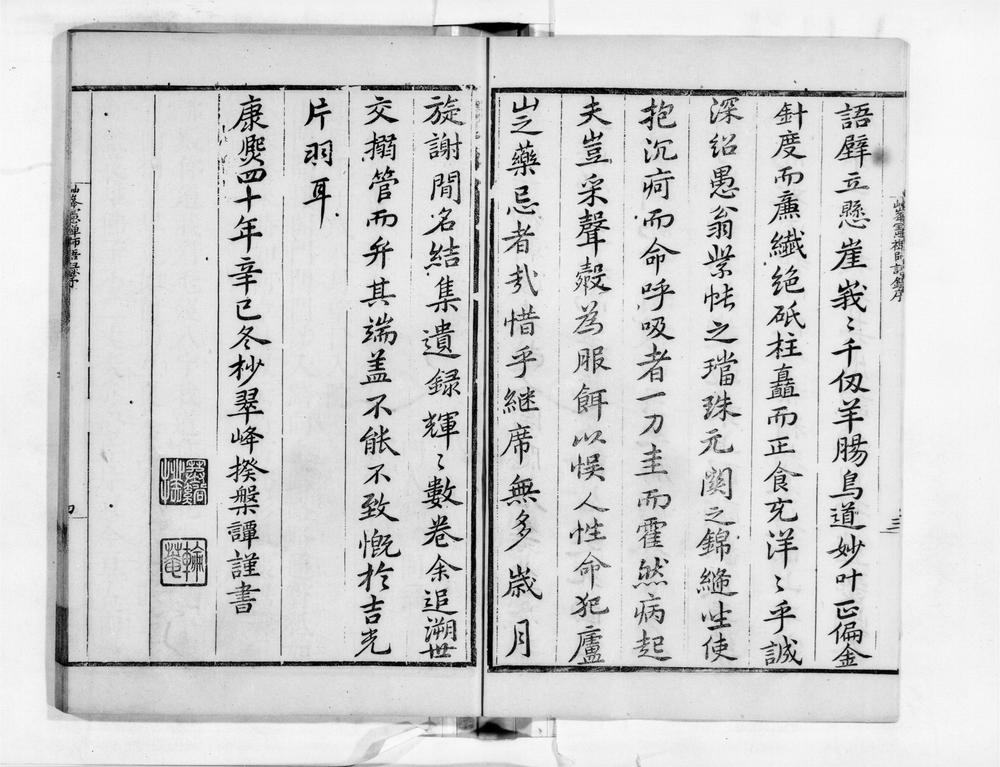 語壁立懸崖峩〻千仭羊腸鳥道妙叶正偏金
針度而亷纖絶砥柱矗而正食充洋〻乎誠
深紹愚翁紫帳之璫珠元関之錦縫㘴使
抱沉疴而命呼吸者一刀圭而霍然病起
夫豈采聲㲉為服餌以悮人性命犯廬
山之藥忌者㢤惜乎継席無多歲月
旋謝間名結集遺録輝〻數卷余追溯世
交搦管而弁其端盖不能不致慨於吉光
片羽耳
康熈四十年辛巳冬杪翠峰揆槃譚謹書
禪師語録序
三
四